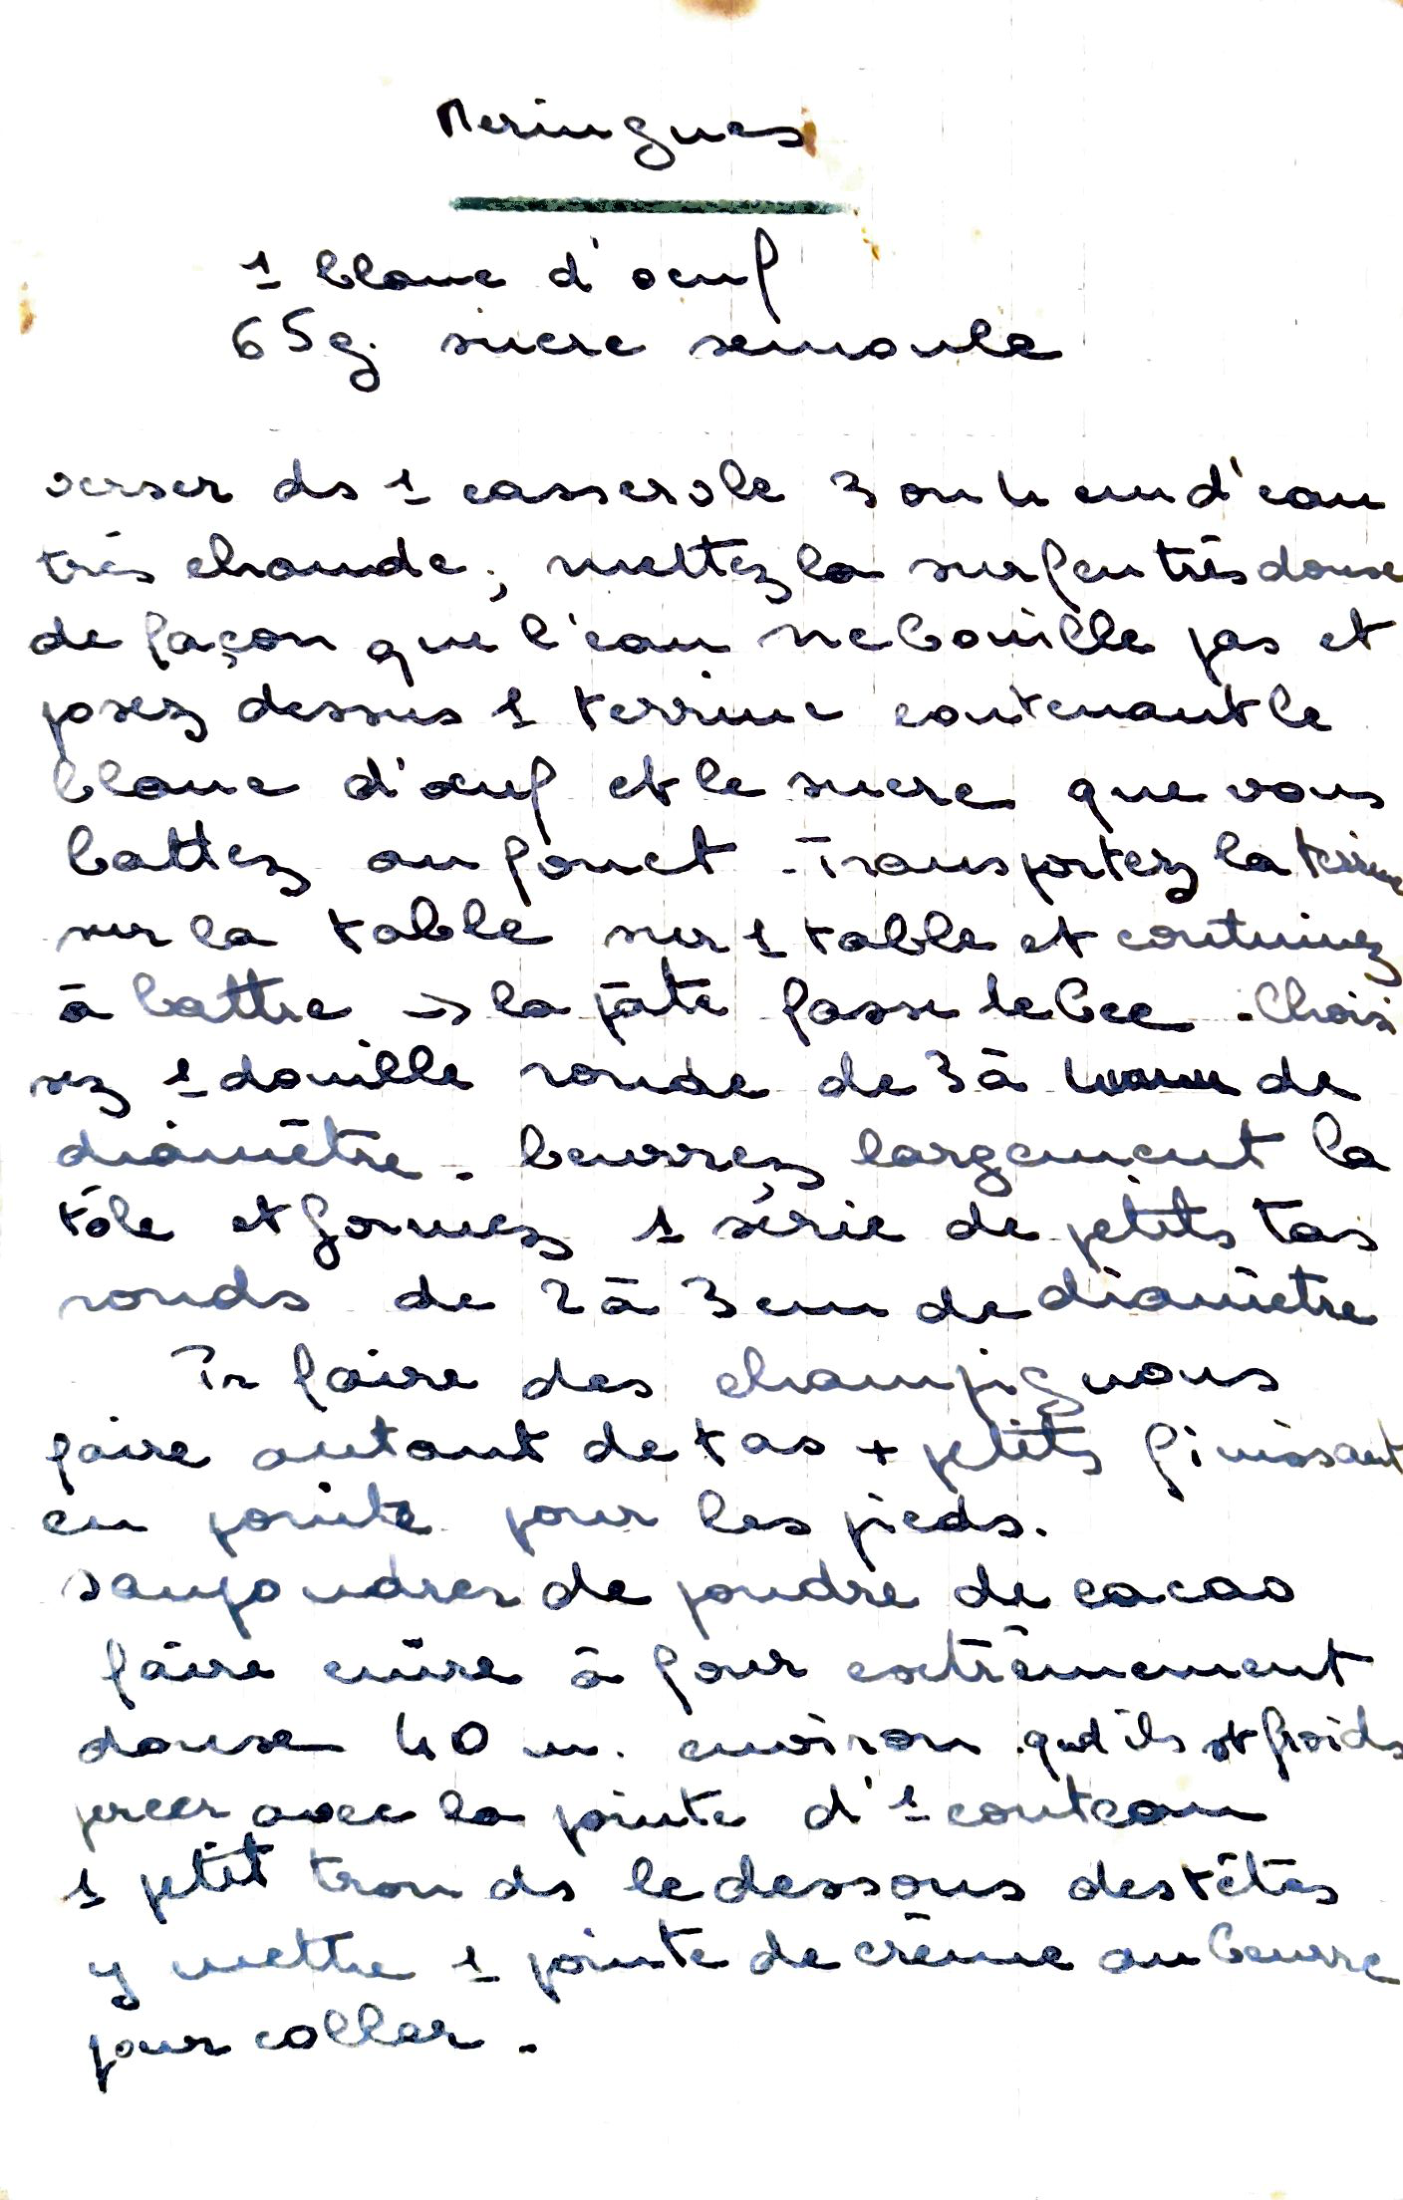 Meringues
1 blanc d'oeuf
65g. sucre semoule
verser ds 1 casserole 3 ou 4 cm d'eau
très chaude ; mettez la sur feu très douse
de façon que l'eau ne bouille pas et
posez dessus 1 terrine contenant le
blanc d'oeuf et le sucre que vous
battez au fouet - Transportez la terrine
sur la table sur 1 table et continuez
à battre → la pâte fasse le bec - Choisi
sez 1 douille ronde de 3 à de
diamètre - beurrez largement la
tôle et formez 1 série de petits tas
ronds de 2 à 3 cm de diamètre
Pr faire des champignons
faire autant de tas + petits finissant
en pointe pour les pieds.
saupoudrer de poudre de cacao
faire cuire à four extrêmement
douse 40 m. environ qud ils st froids
percer avec la pointe d'1 couteau
1 petit trou ds le dessous des têtes
y mettre 1 pointe de crème au beurre
pour coller -